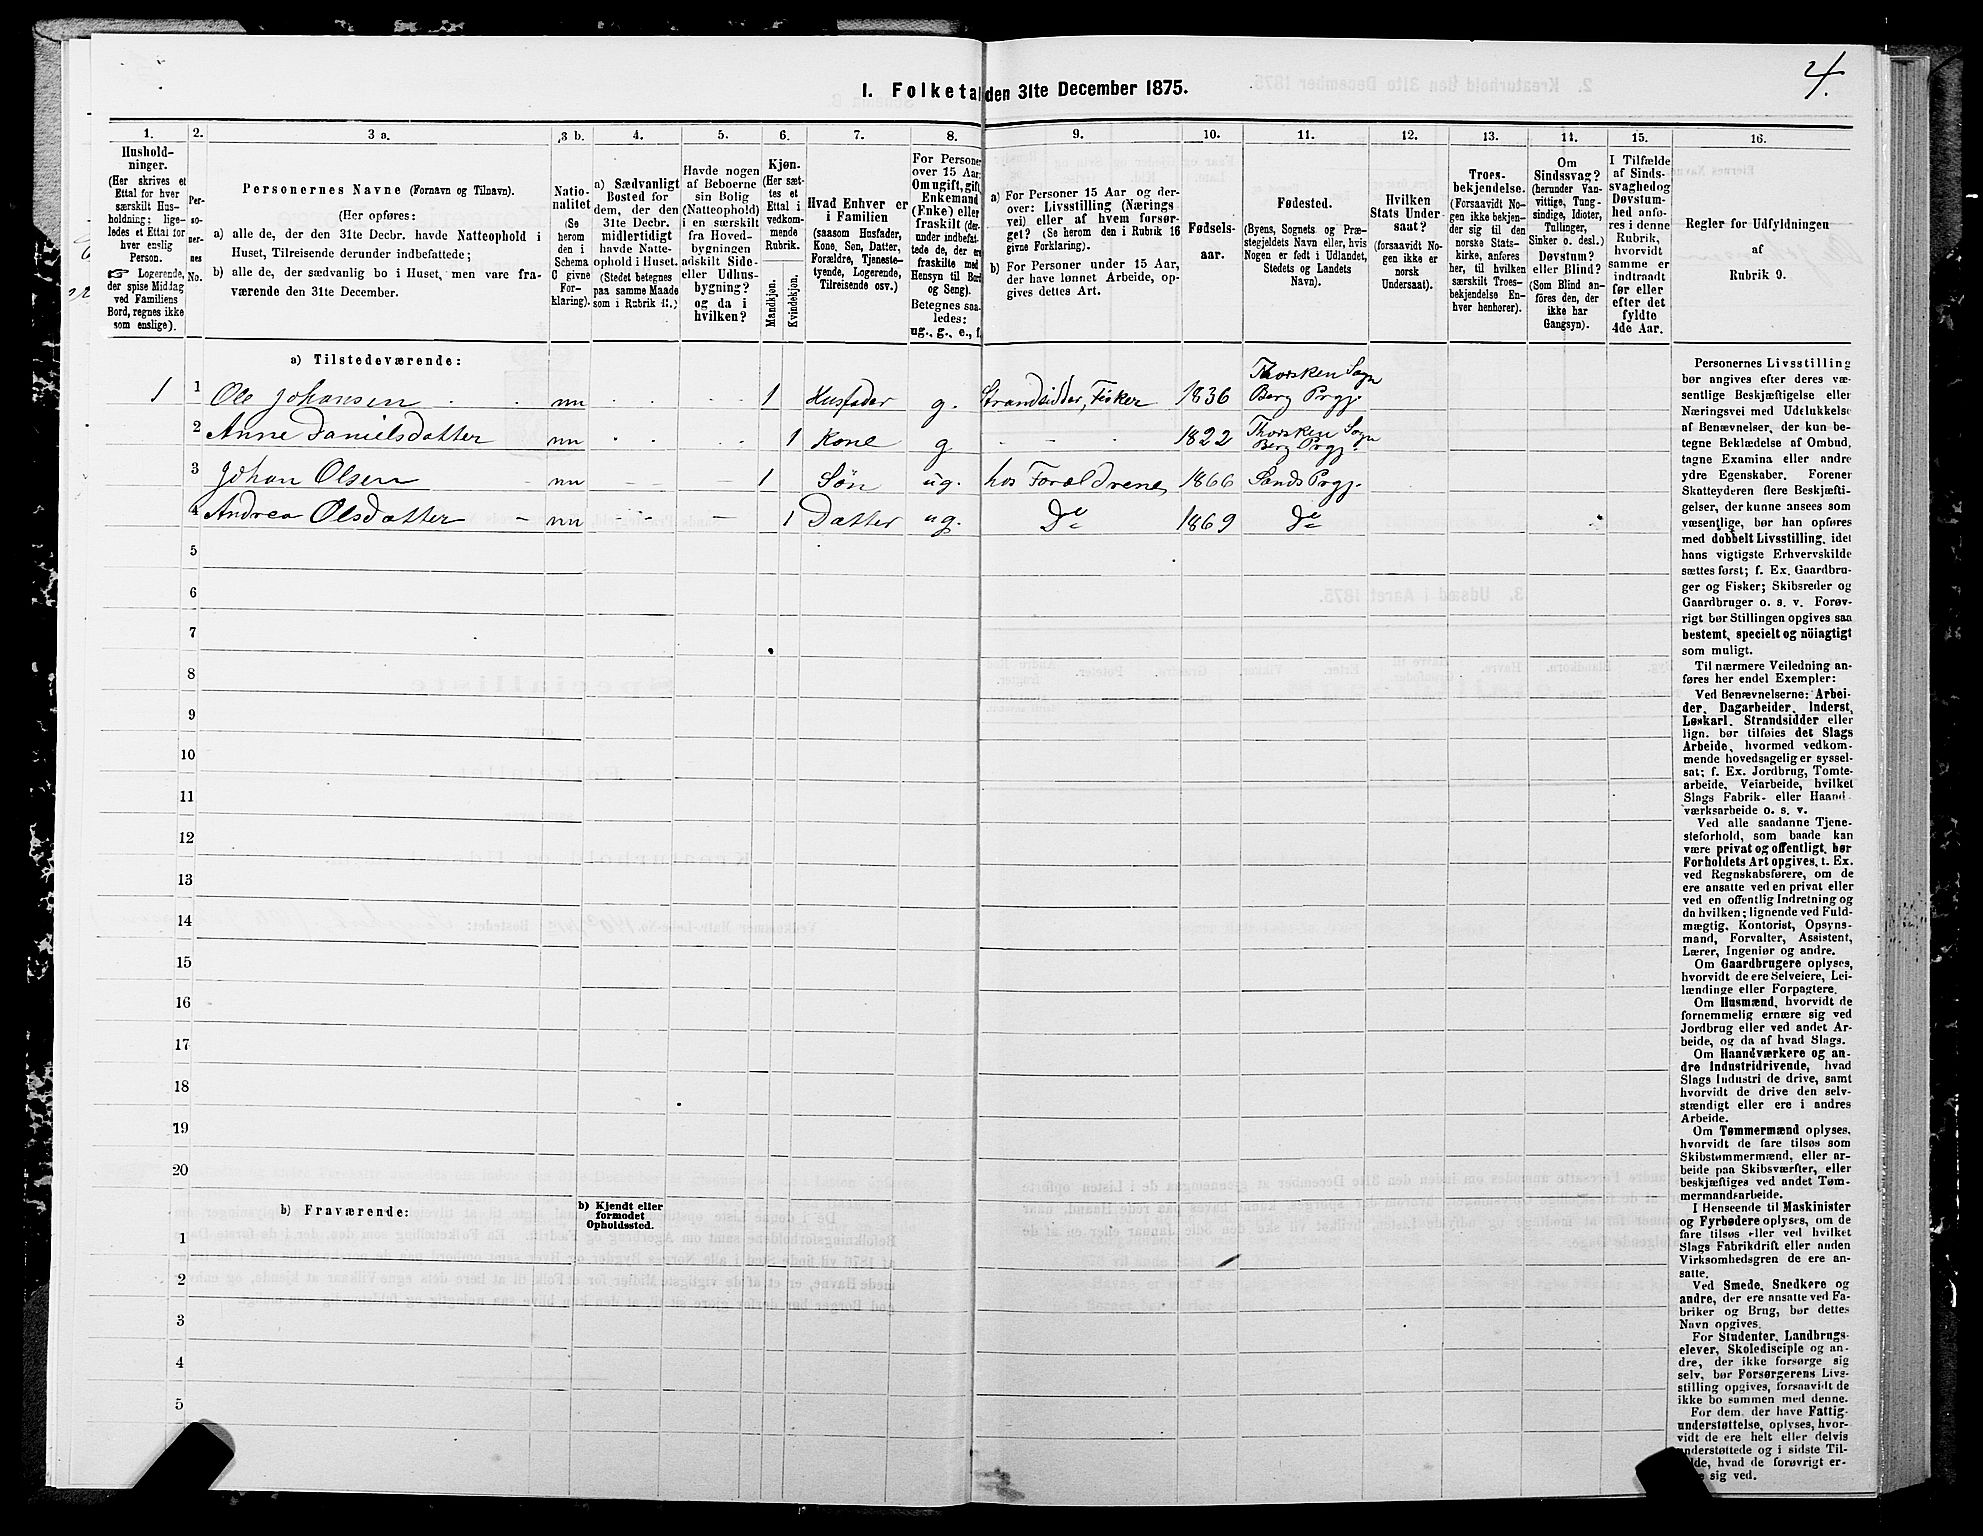 4.
1. Folketal den 31te December 1875.
1.
Hushold-
ninger.
(Her skrives et
Ettal for hver
særskilt Hus-
holdning; lige-
ledes et Ettal for
hver enslig
Person.
☞ Logerende,
der spise Middag
ved Familiens
Bord, regnes ikke
som enslige).
2.
Per-
so-
ner-
nes
No.
3 a.
Personernes Navne (Fornavn og Tilnavn).
(Her opføres:
a) alle de, der den 31te Decbr. havde Natteophold i
Huset, Tilreisende derunder indbefattede;
b) alle de, der sædvanlig bo i Huset, men vare fra-
værende den 31te December.
3 b.
Natio-
nalitet
(Se
herom
den i
Schema
C givne
For-
klaring).
4.
a) Sædvanligt
Bosted for
dem, der den
31te Decbr.
midlertidigt
havde Natte-
ophold i Huset.
(Stedet betegnes
paa samme Maade
som i Rubrik 11.)
5.
Havde nogen
af Beboerne
sin Bolig
(Natteophold)
i en særskilt
fra Hoved-
bygningen
adskilt Side-
eller Udhus-
bygning?
og da i
hvilken?
6.
Kjøn.
(Her sæt-
tes et
Ettal i
vedkom-
mende
Rubrik.
Mandkjøn.
Kvindekjøn.
7.
Hvad Enhver er
i Familien
(saasom Husfader,
Kone, Søn, Datter,
Forældre, Tjeneste-
tyende, Logerende,
Tilreisende osv.)
8.
For Personer
over 15 Aar:
Om ugift, gift,
Enkemand
(Enke) eller
fraskilt (der-
under indbefat-
tede de, der er
fraskilte med
Hensyn til Bord
og Seng).
Betegnes saa-
ledes:
ug., g., e., f.
9.
a) For Personer 15 Aar og der-
over: Livsstilling (Nærings
vei) eller af hvem forsør-
get? (Se herom den i Rubrik 16
givne Forklaring).
b) For Personer under 15 Aar,
der have lønnet Arbeide, op-
gives dettes Art.
10.
Fødsels-
aar.
11.
Fødested.
(Byens, Sognets og Præ-
stegjeldets Navn eller, hvis
Nogen er født i Udlandet,
Stedets og Landets
Navn).
12.
Hvilken
Stats Under-
saat?
(forsaavidt No-
gen ikke er
norsk
Undersaat).
13.
Troes-
bekjendelse.
(Forsaavidt No-
gen ikke bekjen-
der sig til den
norske Stats-
kirke, anføres
her, til hvilken
særskilt Troes-
bekjendelse En-
hver henhører).
14.
Om
Sindssvag?
(herunder Van-
vittige, Tung-
sindige, Idioter,
Tullinger,
Sinker o. desl.)
Døvstum?
eller Blind?
(Som Blind an-
føres den, der
ikke har
Gangsyn).
15.
I Tilfælde
af Sinds-
svaghed og
Døvstum-
hed anfø-
res i denne
Rubrik,
hvorvidt
samme er
indtraadt
før eller
efter det
fyldte
4de Aar.
16.
Regler for Udfyldningen
af
Rubrik 9.
a) Tilstedeværende:
1 1 Ole Johansen nn 1 Husfader g. Strandsidder, Fisker 1836 Thorsken Sogn Berg Prgj.
2 Anne Danielsdatter nn 1 Kone g 1822 Thorsken Sogn Berg Prgj.
3 Johan Olsen nn 1 Søn ug. hos Forældrene 1866 Sands Prgj.
4 Andrea Olsdatter nn 1 Datter ug. Do 1869 Do
5
6
7
8
9
10
11
12
13
14
15
16
17
18
19
20
b) Fraværende:
b) Kjendt eller
formodet
Opholdssted.
1
2
3
4
5
Personernes Livsstilling
bør angives efter deres væ-
sentlige Beskjæftigelse eller
Næringsvei med Udelukkelse
af Benævnelser, der kun be-
tegne Beklædelse af Ombud,
tagne Examina eller andre
ydre Egenskaber. Forener
Skatteyderen flere Beskjæfti-
gelser, der kunne ansees som
væsentlige, bør han opføres
med dobbelt Livsstilling, idet
hans vigtigste Erhvervskilde
sættes først; f. Ex. Gaardbru-
ger og Fisker; Skibsreder og
Gaardbruger o. s. v. Forøv-
rigt bør Stillingen opgives saa
bestemt, specielt og nöiagtigt
som muligt.
Til nærmere Veiledning an-
føres her endel Exempler:
Ved Benævnelserne: Arbei-
der, Dagarbeider, Inderst,
Løskarl, Strandsidder eller
lign. bør tilføies det Slags
Arbeide, hvormed vedkom-
mende hovedsagelig er syssel-
sat; f. Ex. Jordbrug, Tomte-
arbeide, Veiarbeide, hvilket
Slags Fabrik- eller Haand-
værksarbeide o. s. v.
Ved alle saadanne Tjene-
steforhold, som baade kan
være privat og offentligt, bør
Forholdets Art opgives, t. Ex.
ved Regnskabsførere, om de
ere ansatte ved en privat eller
ved en offentlig Indretning og
da hvilken; lignende ved Fuld-
mægtig, Kontorist, Opsyns-
mand, Forvalter, Assistent,
Lærer, Ingeniør og andre.
Om Gaardbrugere oplyses,
hvorvidt de ere Selveiere, Lei-
lændinge eller Forpagtere.
Om Husmænd, hvorvidt de
fornemmelig ernære sig ved
Jordbrug eller ved andet Ar-
beide, og da af hvad Slags.
Om Haandværkere og an-
dre Industridrivende, hvad
Slags Industri de drive, samt
hvorvidt de drive den selv-
stændigt eller ere i andres
Arbeide.
Om Tømmermænd oplyses,
hvorvidt de fare tilsøs som
Skibstømmermænd, eller ar-
beide paa Skibsværfter, eller
beskjæftiges ved andet Tøm-
mermandsarbeide.
I Henseende til Maskinister
og Fyrbødere oplyses, om de
fare tilsøs eller ved hvilket
Slags Fabrikdrift eller anden
Virksomhedsgren de ere an-
satte.
Ved Smede, Snedkere og
andre, der ere ansatte ved Fa-
briker og Brug, bør dettes
Navn opgives.
For Studenter, Landbrugs-
elever, Skoledisciple og an-
dre, der ikke forsørge sig
selv, bør Forsørgerens Livs-
stilling opgives, forsaavidt de
ikke bo sammen med denne.
For dem, der have Fattig-
understøttelse, oplyses, hvor-
vidt de ere helt eller delvis
understøttede og i sidste Til-
fælde, hvad de forøvrigt er-
sig ved.